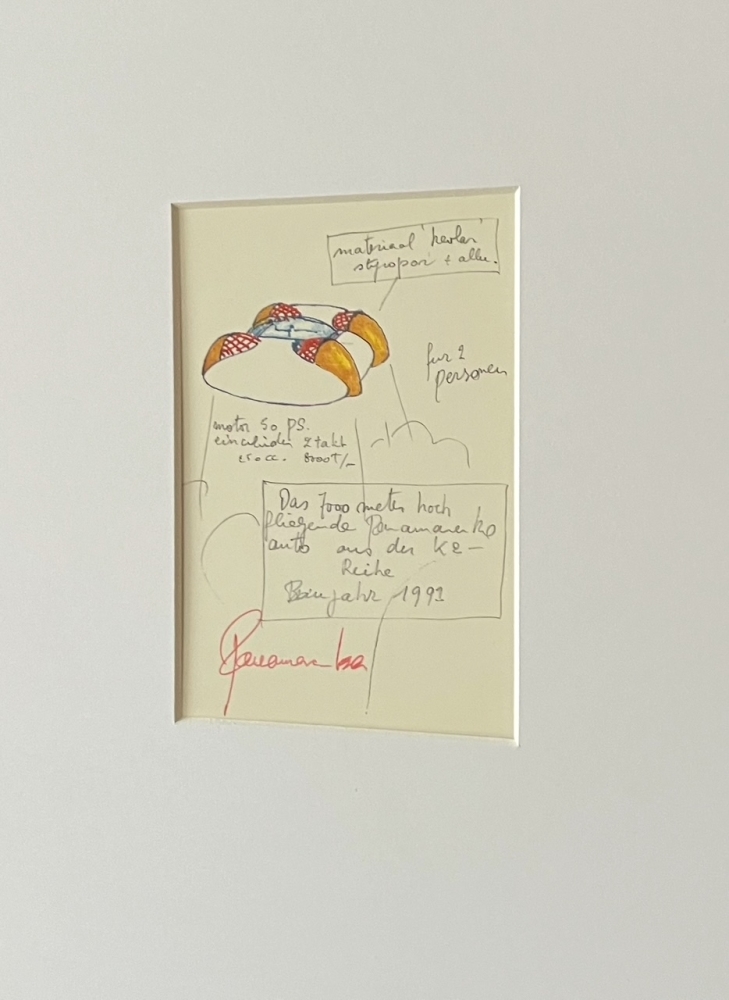 materiaal 'kevlar'
styropor + allu.
für 2
personen
motor 50 PS.
2 takt
250 cc. 8000T/-
Das 7000 meter hoch
fliegende Panamarenko
auto aus der K2-
Reihe
Baujahr 1991
Panamarenko